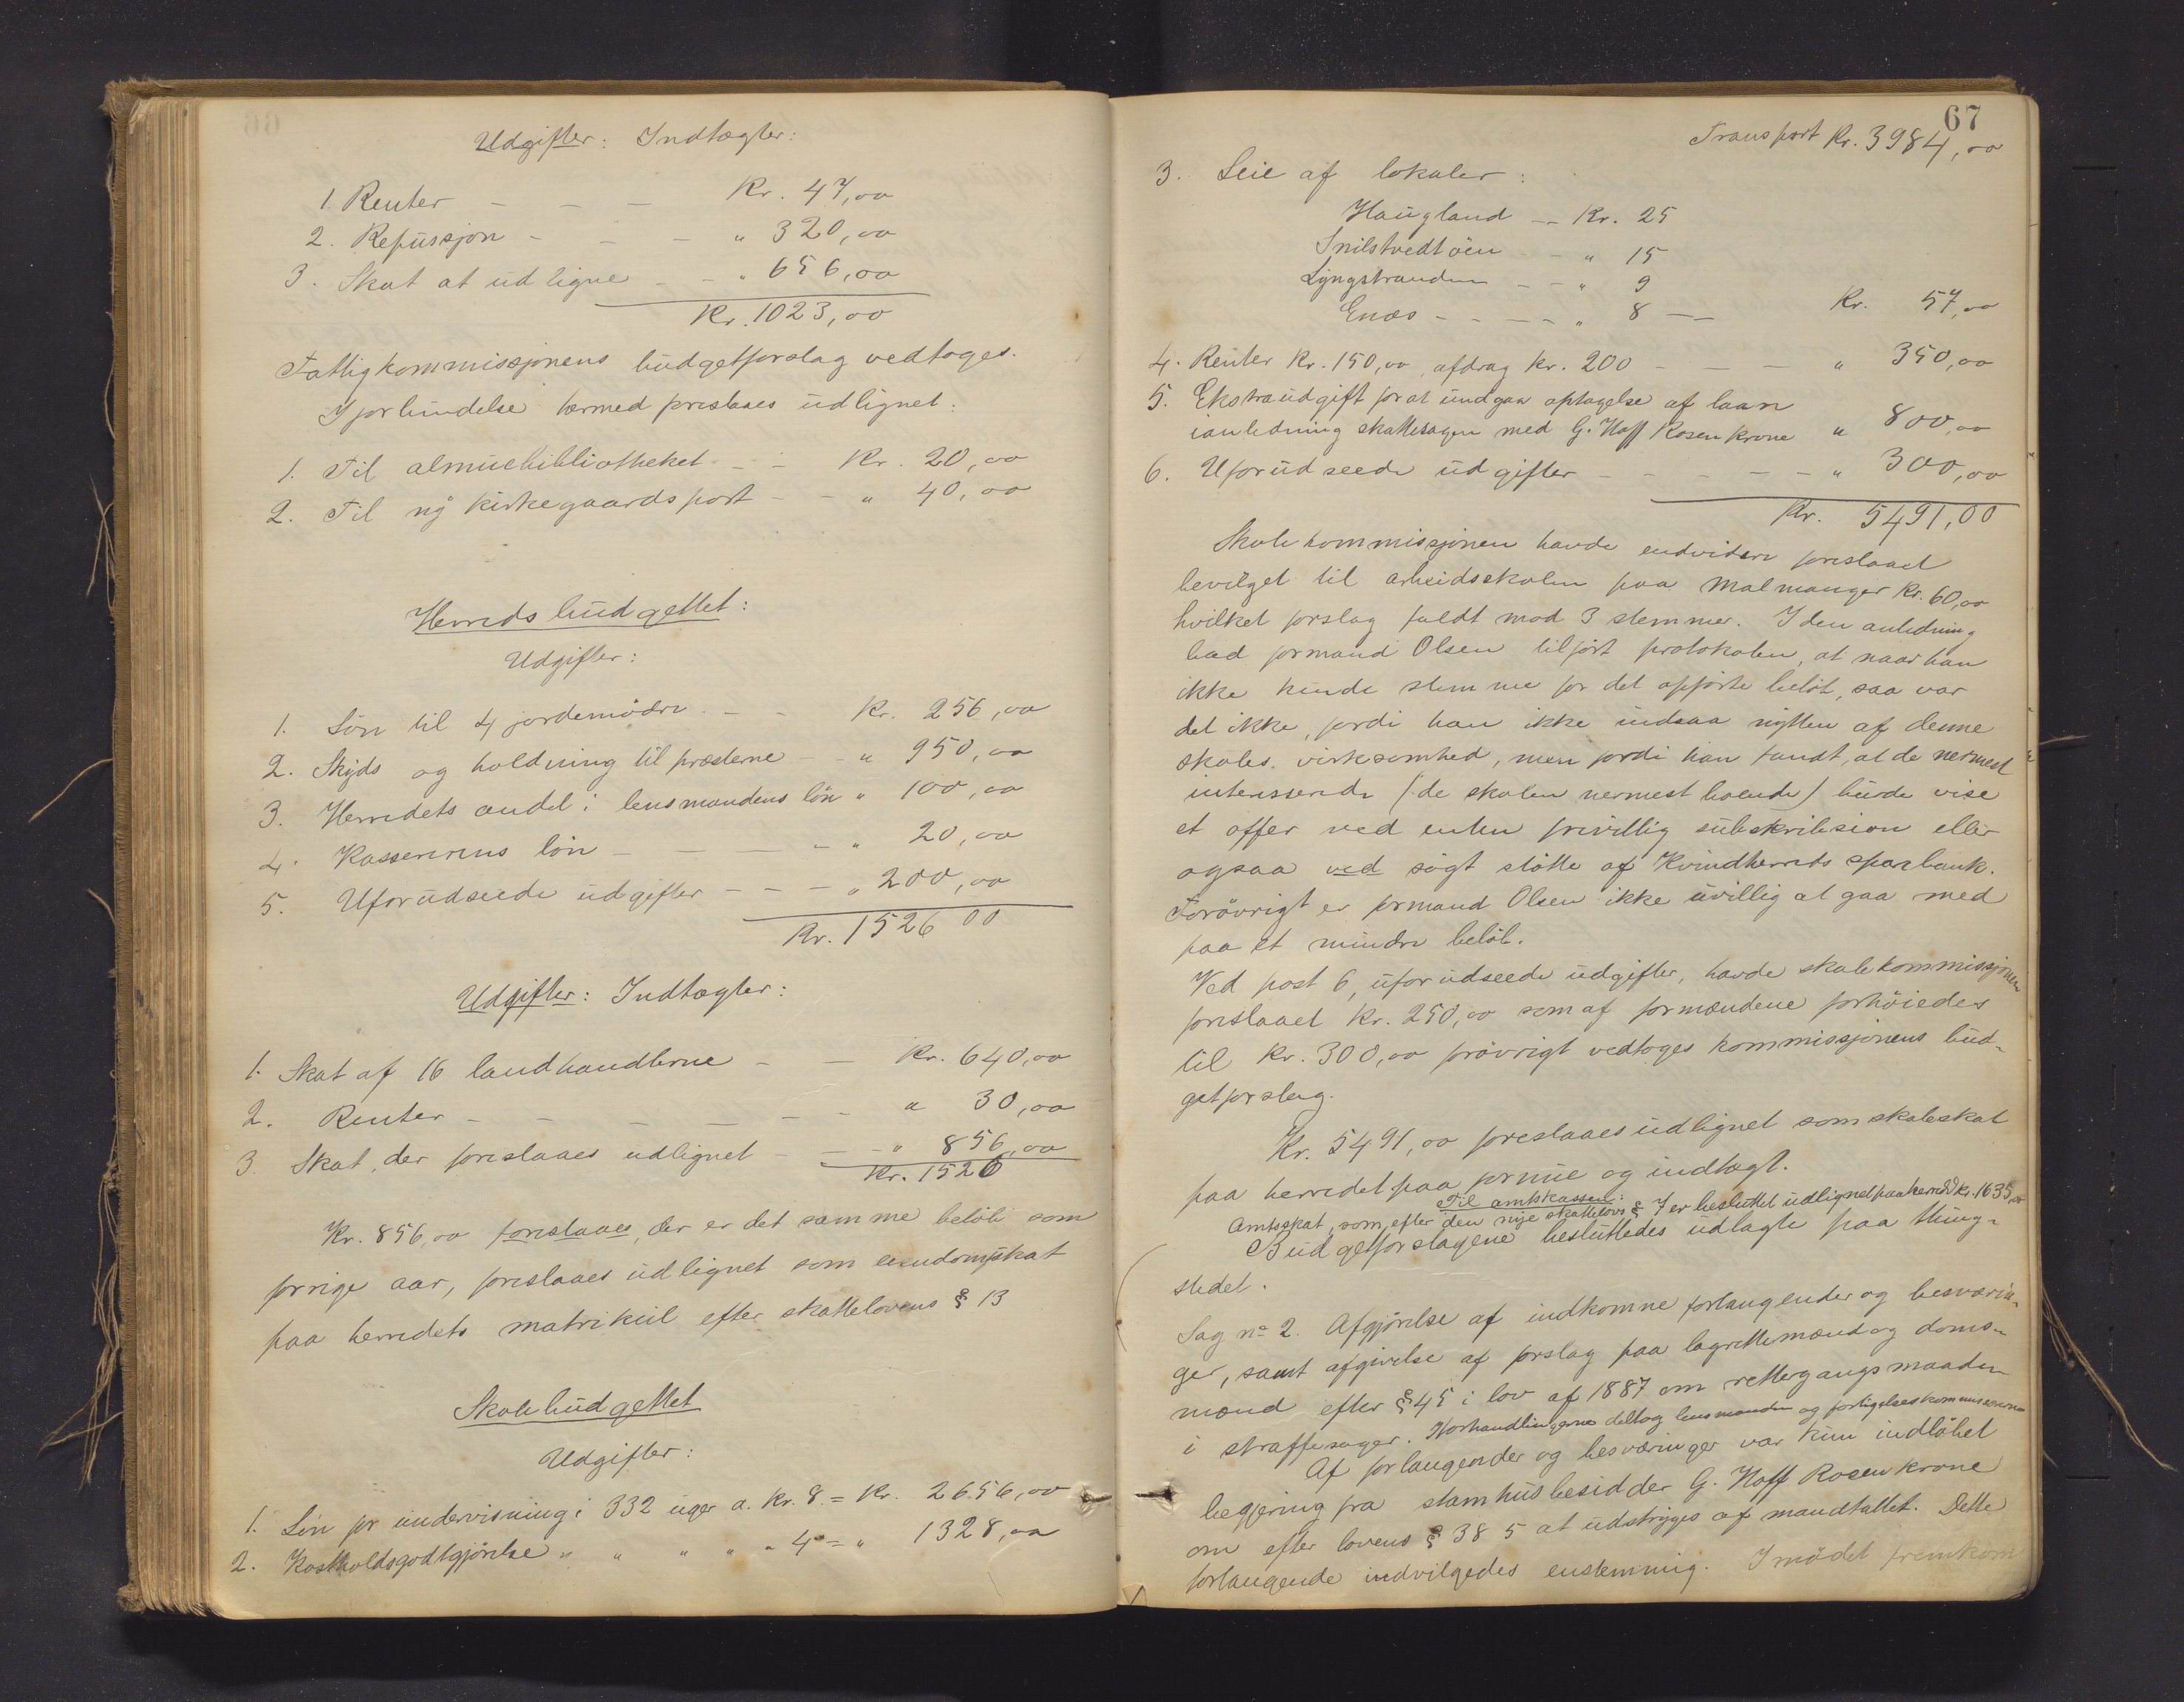 Udgifter: Indtægter:
1. Renter - - - Kr. 47,00
2. Refussjon - - - " 320,00
3. Skat at udligne - - " 656,00
Kr. 1023,00
Fattigkommissjonens budgetforslag vedtoges.
I forbindelse hermed foreslaaes udlignet:
1. Til almuebibliotheket - - Kr. 20,00
2. Til ny kirkegaardsport - - " 40,00
Herredsbudgettet:
Udgifter:
1. Løn til 4 jordemödre - - Kr. 256,00
2. Skyds og holdning til præsterne - - " 950,00
3. Herredets andel i lensmandens lön " 100,00
4. Kassererens lön - - - - - " 20,00
5. Uforudseede udgifter - - - " 200,00
Kr. 1526 00
Udgifter: Indtægter:
1. Skat af 16 landhandlerne - - Kr. 640,00
2. Renter - - - - - " 30,00
3. Skat, der foreslaaes udlignet - - - " 856,00
Kr. 1526
Kr. 856,00 foreslaaes, der er det samme beløb som
forrige aar, foreslaaes udlignet som eiendomsskat
paa herredets matrikul efter skattelovens § 13
Skolebudgettet
Udgifter:
1. Løn for undervisning i 332 uger a. Kr. 8 = Kr. 2656,00
2. Kostholdsgodtgjörelse " " " " " 4 = " 1328,00
67
Transport Kr. 3984,00
3. Leie af lokaler:
Haugland - - Kr. 25
Snilstvedtöen - - " 15
Lyngstranden - - " 9
Enæs - - - - " 8 - - Kr. 57,00
4. Renter Kr. 150,00, afdrag kr. 200 - - - " 350,00
5. Ekstraudgift for at undgaa optagelse af laan
ianledning skattesagen med G. Hoff Rosenkrone " 800,00
6. Uforudseede udgifter - - - - - " 300,00
Kr. 5491,00
Skolekommissjonen havde endvidere foreslaaet
bevilget til arbeidsskolen paa Malmanger Kr. 60,00
hvilket forslag faldt mod 3 stemmer. I den anledning
bad formand Olsen tilført protokolen, at naar han
ikke kunde stemme for det opførte beløb, saa var
det ikke, fordi han ikke indsaa nytten af denne
skoles virksomhed, men fordi han fandt, at de nermest
interesserede (de skolen nermest boende) burde vise
et offer ved enten frivillig subskribsion eller
ogsaa ved søgt støtte af Kvindherreds sparbank.
Forövrigt er formand Olsen ikke uvillig at gaa med
paa et mindre beløb.
Ved post 6, uforudseede udgifter, havde skolekommissjonen
foreslaaet Kr. 250,00 som af formændene forhöiedes
til Kr. 300,00 forövrigt vedtoges kommissjonens bud-
getforslag.
Kr. 5491,00 foreslaaes udlignet som skoleskat
paa herredet paa formue og indtægt.
Til amtskassen:
Amtsskat, som, efter den nye skattelovs § 7 er besluttet udlignet paa herredet kr. 1635,00
Budgetforslagene besluttedes udlagte paa thing-
stedet.
Sag no 2. Afgjörelse af indkomne forlangender og besværin-
ger, samt afgivelse af forslag paa lagrettemænd og doms-
mænd efter § 45 i lov af 1887 om rettergangsmaaden
i straffesager. Forhandlingerne deltog lensmanden og forligelseskommisærerne
Af forlangender og besværinger var kun indløbet
begjering fra stamhusbesidder G. Hoff Rosenkrone
om efter lovens § 38 5 at udstryges af mandtallet. Dette
forlangende indvilgedes enstemmig. I mödet fremkom